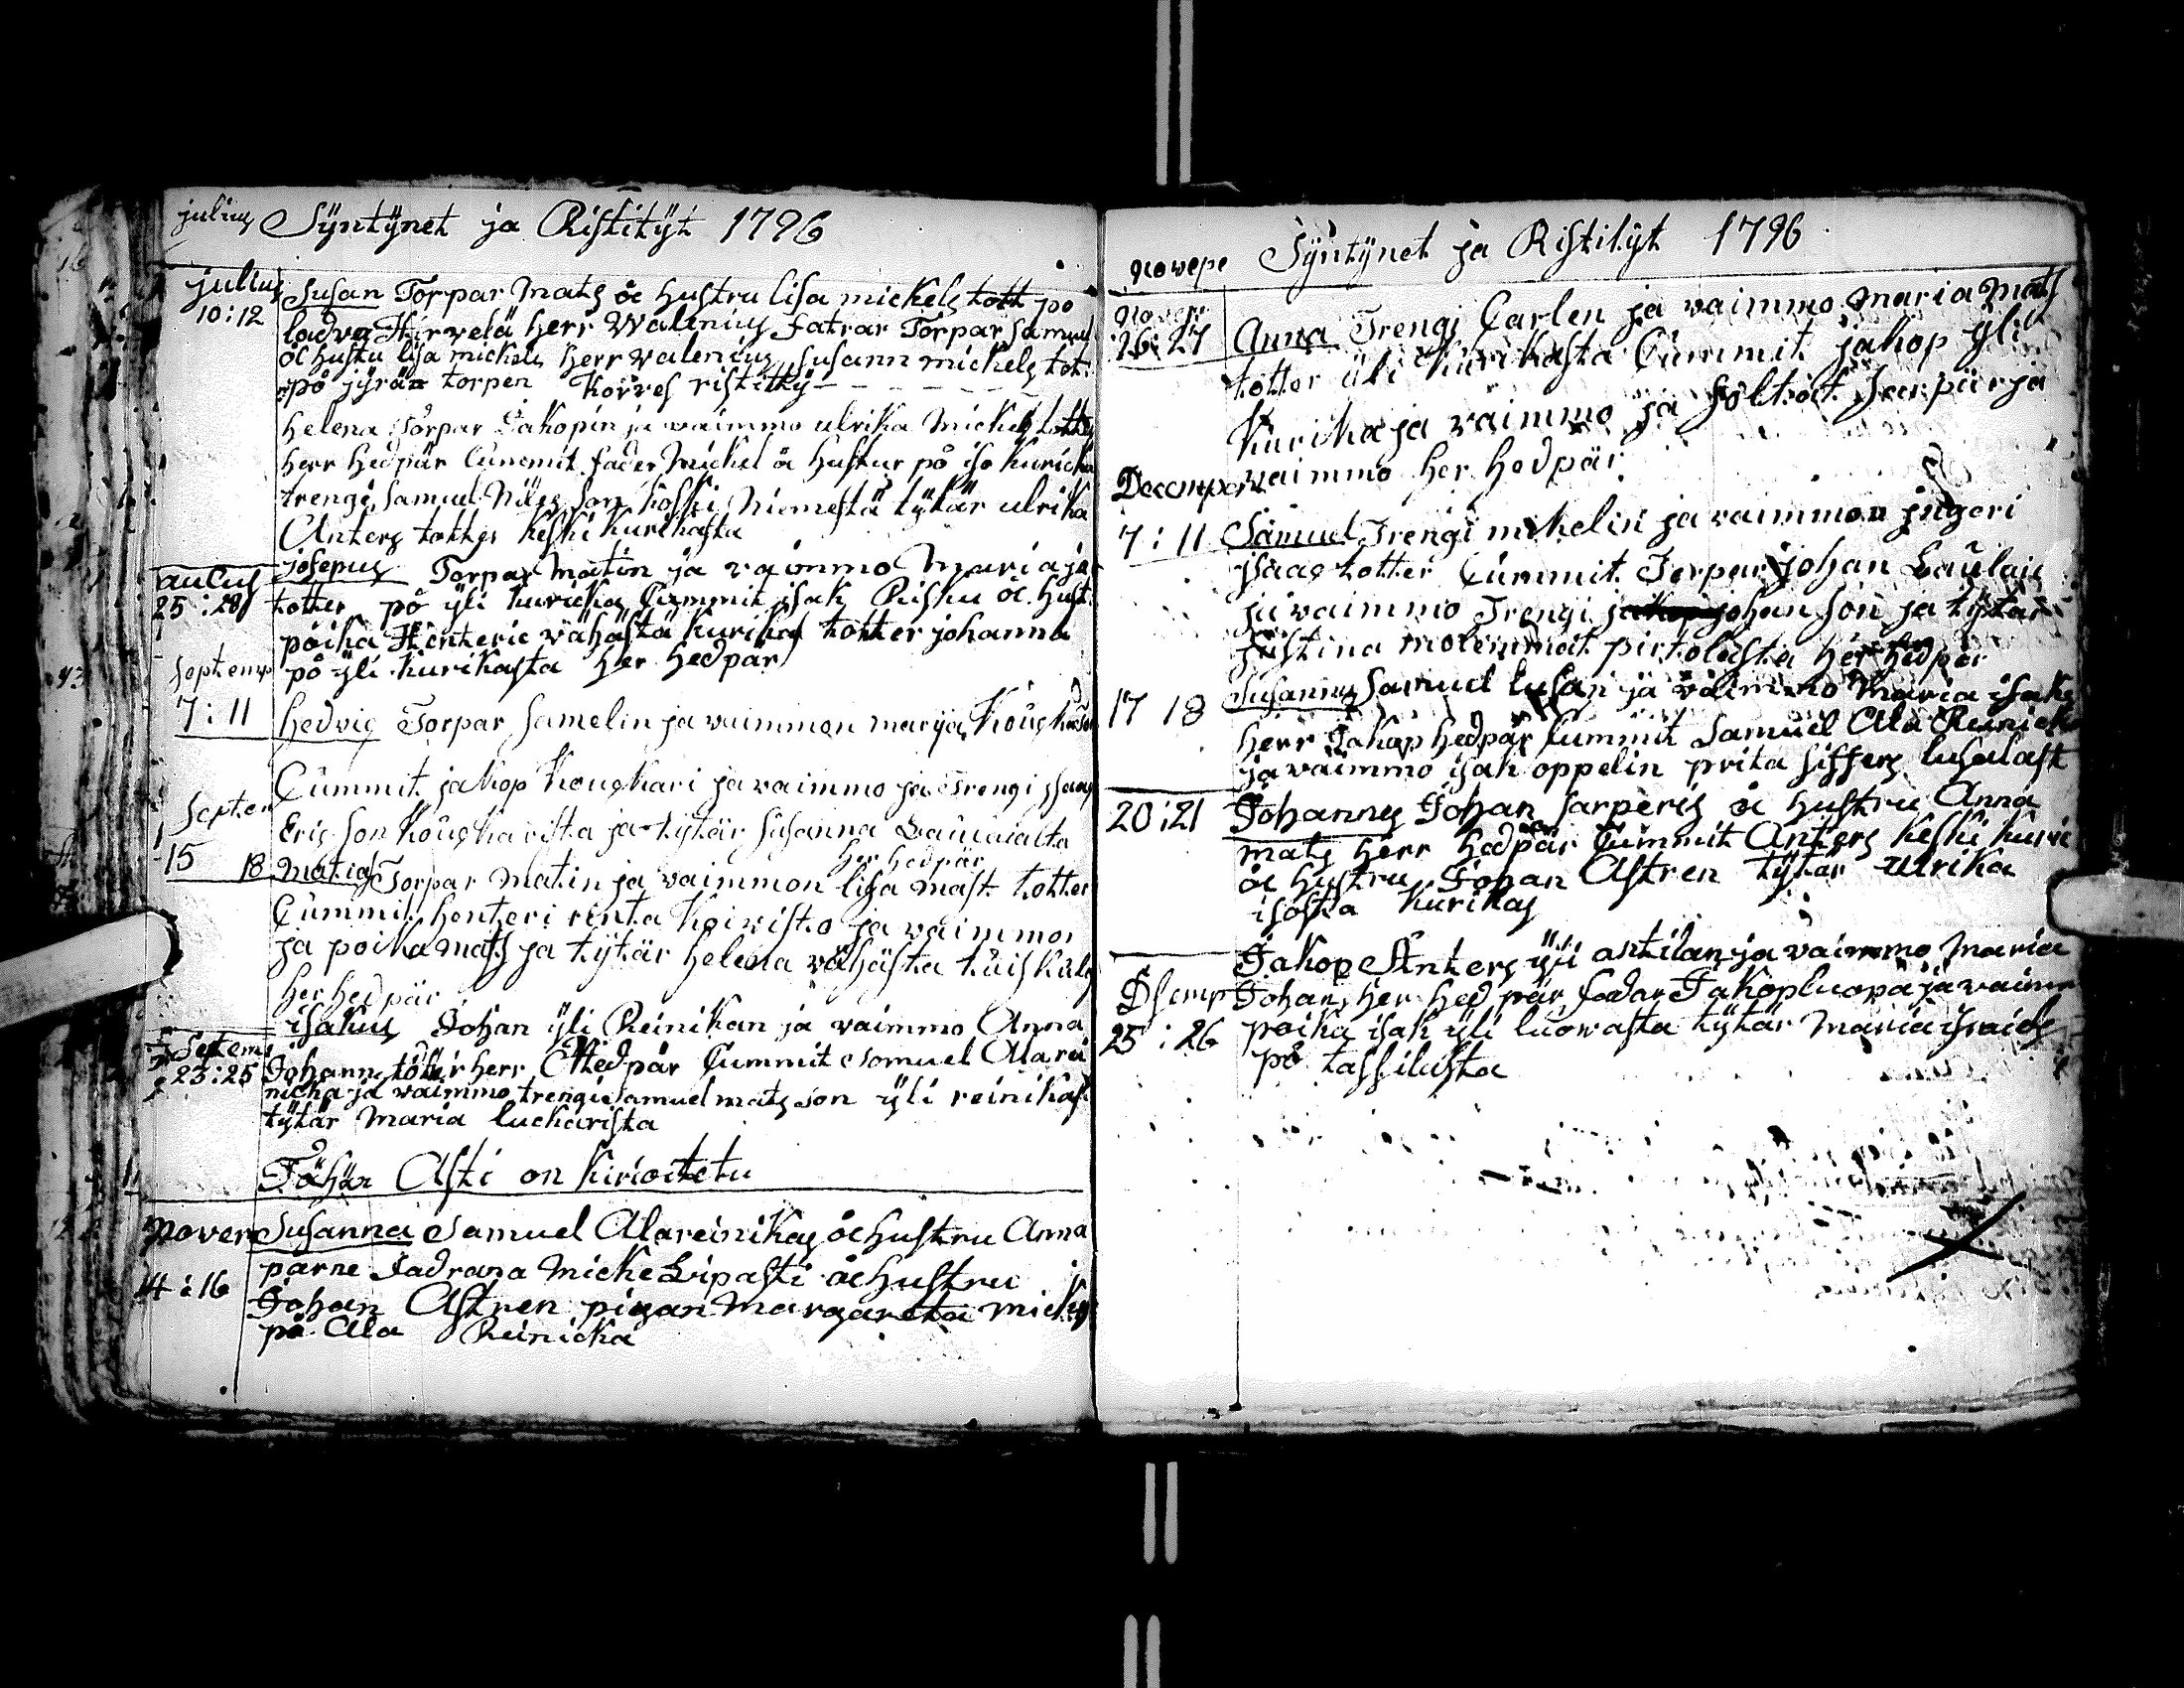 julius Syntynet ja Ristityt 1796
julius Susan Torpar Mats åc hustru lisa mickels tott po
10:12 ladva Hirvelä herr Walenius fatrar Torpar Samuel
åc hustu lisa mickels herr valenius Susann mickels tot:
på jyrän torpen Korves ristitty
helena Torpar Jakopin ja vaimmo ulrika Mickels totter
herr hedpär Cummit fader Mickel åc hustur på iso kuricka
trengi Samuel Nils Son koski Niemestä tytär ulrika
Anters totter keski kurikasta
aucus josepus Torpar Matin ja vaimmo Maria ja
25:28 totter på yli kuricka Cummit isak Risku åc hust:
poika Henteric vähästä kurikas totter johanna
septemp på yli kurikasta her hedpär
7:11 hedvig Torpar Samelin ja vaimmon marija
Cummit jakop Kouckari ja vaimmo ja Trengi
septer Eric Son Kouckarista ja tytär Susanna
her hedpär
15 18 Matias Torpar Matin ja vaimmon lisa mast totter
Cummit henteri rinta Koivisto ja vaimmon
ja poika mats ja tytär helena vähästä
her hedpär
isakus Johan yli Reinikan ja vaimmo Anna
septem Johans totter herr Hedpär Cummit Samuel Alarei
23:25 nicka ja vaimmo trengi Samuel mats son yli reinikast
tytär Maria luckarista
Tähän Asti on kirioitetu
Nover Susanna Samuel Alareinikas åc hustru Anna
parne fadrana Micke Lipasti åc hustru
14:16 Johan Astren pigan Margareta mickels
på Ala Reinicka
Novepe Syntynet ja Ristityt 1796
Nover
26:27 Anna Trengi Carlen ja vaimmo maria Mats
totter yli Kurikasta Cummit jakop yli
Kurika ja vaimmo ja Soltot ja
Decemper vaimmo her hedpär
7:11 Samuel Trengi mikelin ja vaimmon jngeri
jsacs totter Cummit Torpar johan
ja vaimmo Trengi jakop johan son ja tytär
justina molemmat pirtolasta her hedpär
17 18 Susanna Samuel lusan ja vaimmo Maria isaks
herr Jakop hedpär kummit Samuel Ala Reinick
ja vaimmo isak oppelin prita siffers lusalast
20:21 Johannes Johan Sarperis åc hustru Anna
mats herr hedpär Cummit Anters keski kuric
åc hustru Johan Astren tytär ulrika
isosta kurikas
Jakop Anters yli antilan ja vaimmo Maria
Dsemp Johans her hed pär fadar Jakop luopa ja vaimo
25:26 poika isak yli luowasta tytär Maria
på tassilasta